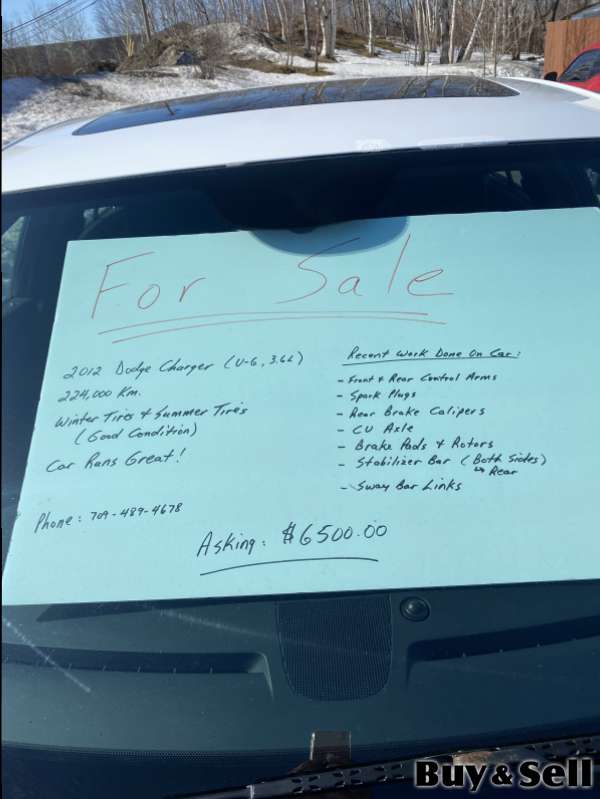 For Sale
2012 Dodge Charger (V-6, 3.6L)
224,000 Km.
Winter Tires & Summer Tires
(Good Condition)
Car Runs Great!
Phone: 709-489-4678
Recent Work Done On Car:
- Front & Rear Control Arms
- Spark Plugs
- Rear Brake Calipers
- CV Axle
- Brake Pads & Rotors
- Stabilizer Bar (Both Sides)
↳ Rear
- Sway Bar Links
Asking: $6500.00
Buy & Sell